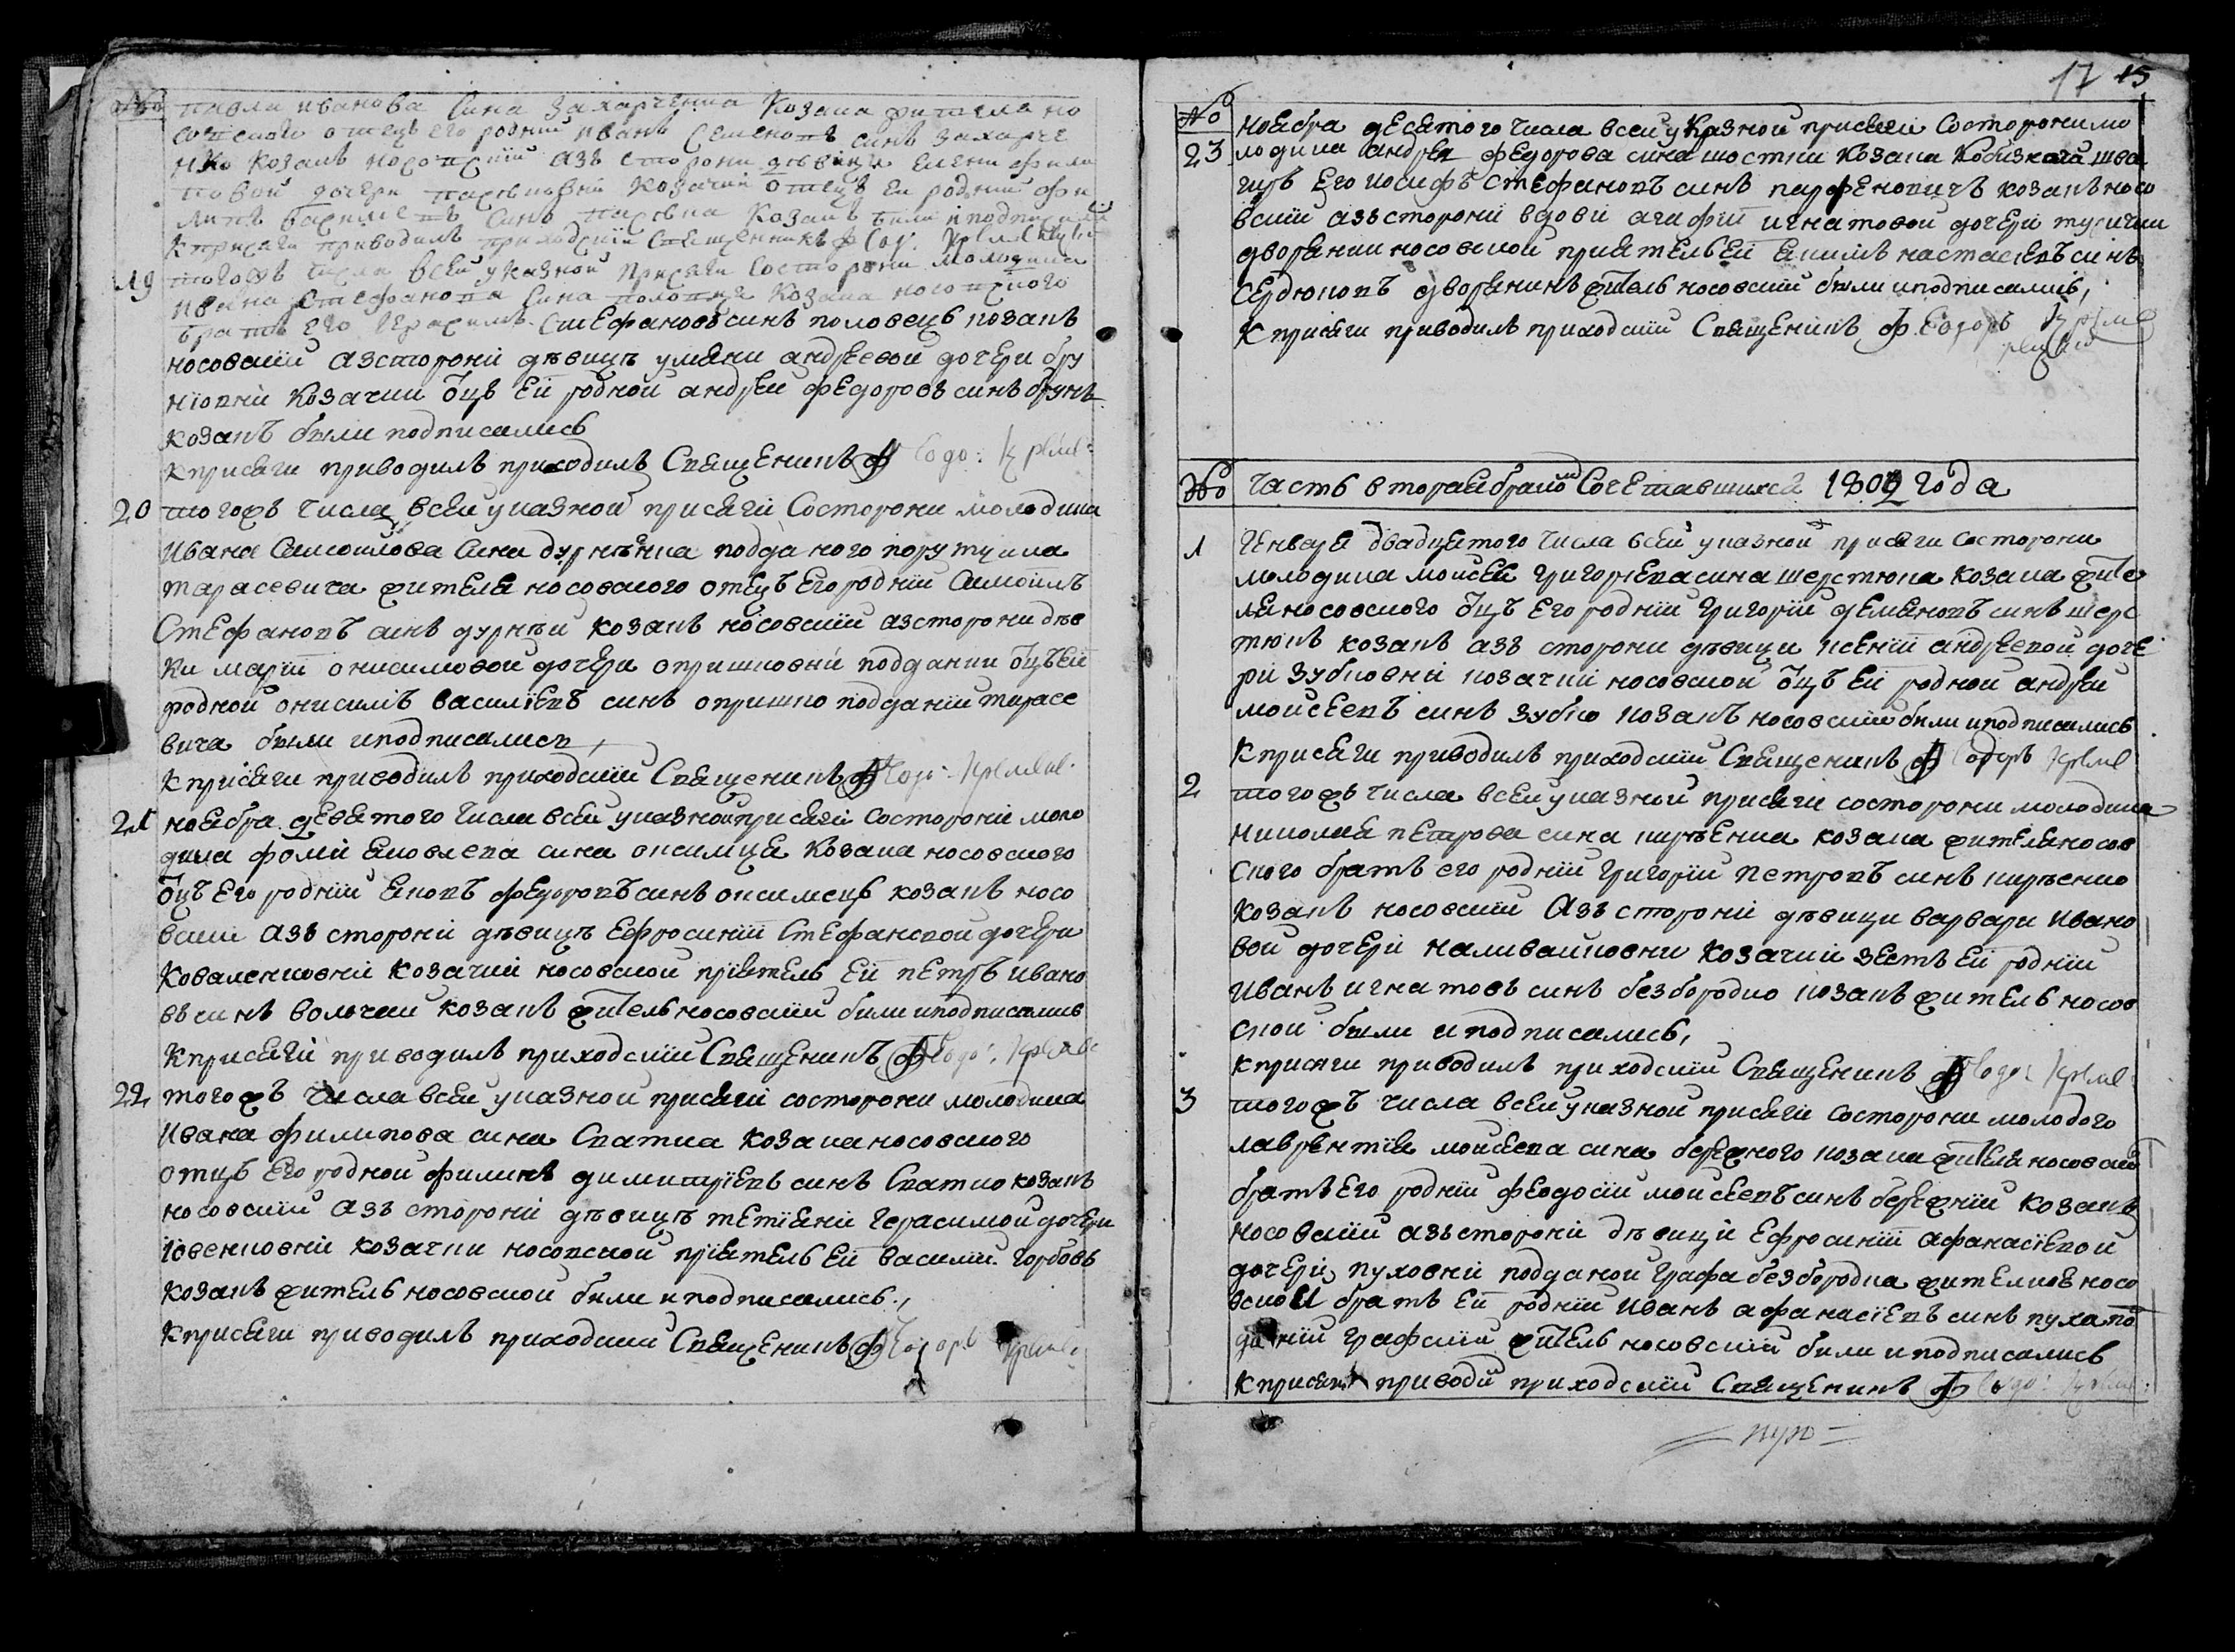 № павла иванова сина захарченка козака жителя но
совского отецъ его родний иванъ семеновъ синъ захарче
нко козакъ носовский азъ сторони девици елени фили
повой дочери козачки отецъ ей родний фи
липъ синъ козакъ били и подписались
к присяги приводилъ приходский священникъ Ф
19 тогожъ числа всей указной присяги состорони молодика
ивана стефанова сина половца козака носовского
братъ его герасимъ стефановъ синъ половецъ козакъ
носовский азсторони дѣвицѣ уляни андреевой дочери бру
нювни козачки оцъ ей родной андрей федоровъ синъ брунь
козакъ были подписались
к присяги приводилъ приходилъ священикъ Ф
20 тогожъ числа всей указной присяги состорони молодика
ивана самойлова сина дурнѣнка подданого порутчика
тарасевича жителя носовского отецъ его родний самоилъ
стефановъ синъ дурнѣй козакъ носовский азсторони дѣв
ки марии онисимовой дочери опришковни подданки оцъ ей
родной онисимъ василиевъ синъ опришко подданий тарасе
вича были и подписались,
к присяги приводилъ приходский священикъ Ф
21 ноября девятого числа всей указной присяги состорони моло
дика фоми яковлева сина оксимца козака носовского
оцъ его родний яковъ федоровъ синъ оксимецъ козакъ носо
вский азъ сторони дѣвицѣ ефросинии стефановой дочери
коваленковни козачки носовской приятель ей петръ ивано
въ синъ волочай козакъ житель носовский били и подписались
к присяги приводилъ приходский священикъ Ф
22 тогожъ числа всей указной присяги состорони молодика
ивана филипова сина скатка козака носовского
отцъ его родной филипъ димитриевъ синъ скатко козакъ
носовский азъ сторони дѣвицѣ тетияни герасимой дочери
ювенковни козачки носовской приятель ей василий горбовъ
козакъ житель носовской били и подписались,
к присяги приводилъ приходский священикъ Ф
17 15
№ ноября десятого числа всей указной присяги состорони мо
23 лодика андрея федорова сина шостки козака кобизкого шва
гиръ его иосифъ стефановъ синъ парфеновичъ козакъ носо
вский азъсторони вдови агафии игнатовой дочери
дворянки носовской приятель ей якимъ настасиевъ синъ
сердюковъ дворянинъ житель носовский были и подписались,
к присяги приводилъ приходский священикъ Ф
№ Часть вторая бракомъ сочетавшихся 1802 года
1 генваря двадцатого числа всей указной присяги состорони
молодика моисея григориева сина шерстюка козака жите
ля носовского оцъ его родний григорий демяновъ синъ шерс
тюкъ козакъ азъ сторони дѣвици ксении андреевой доче
ри зубковни козачки носовской оцъ ей родной андрей
моисеевъ синъ зубко козакъ носовский били и подписались
к присяги приводилъ приходский священикъ Ф
2 тогожъ числа всей указной присяги состорони молодика
николая петрова сина кирѣенка козака жителя носов
ского братъ его родний григорий петровъ синъ кирѣенко
козакъ носовский азъ сторони дѣвици варвари ивано
вой дочери наливайковни козачки зять ей родний
иванъ игнатовъ синъ безбородко козакъ житель носов
ской были и подписались,
к присяги приводилъ приходский священикъ Ф
3 тогожъ числа всей указной присяги состорони молодого
лаврентия моисеева сина бережного козака жителя носовского
братъ его родний феодосий моисеевъ синъ бережний козакъ
носовский азъсторони дѣвици ефросинии афанасиевой
дочери пуховни подданой графа безбородка жителков носо
вской братъ ей родний иванъ афанасиевъ синъ пуха по
даний графский житель носовский били и подписались
к присяги приводи приходский священикъ Ф